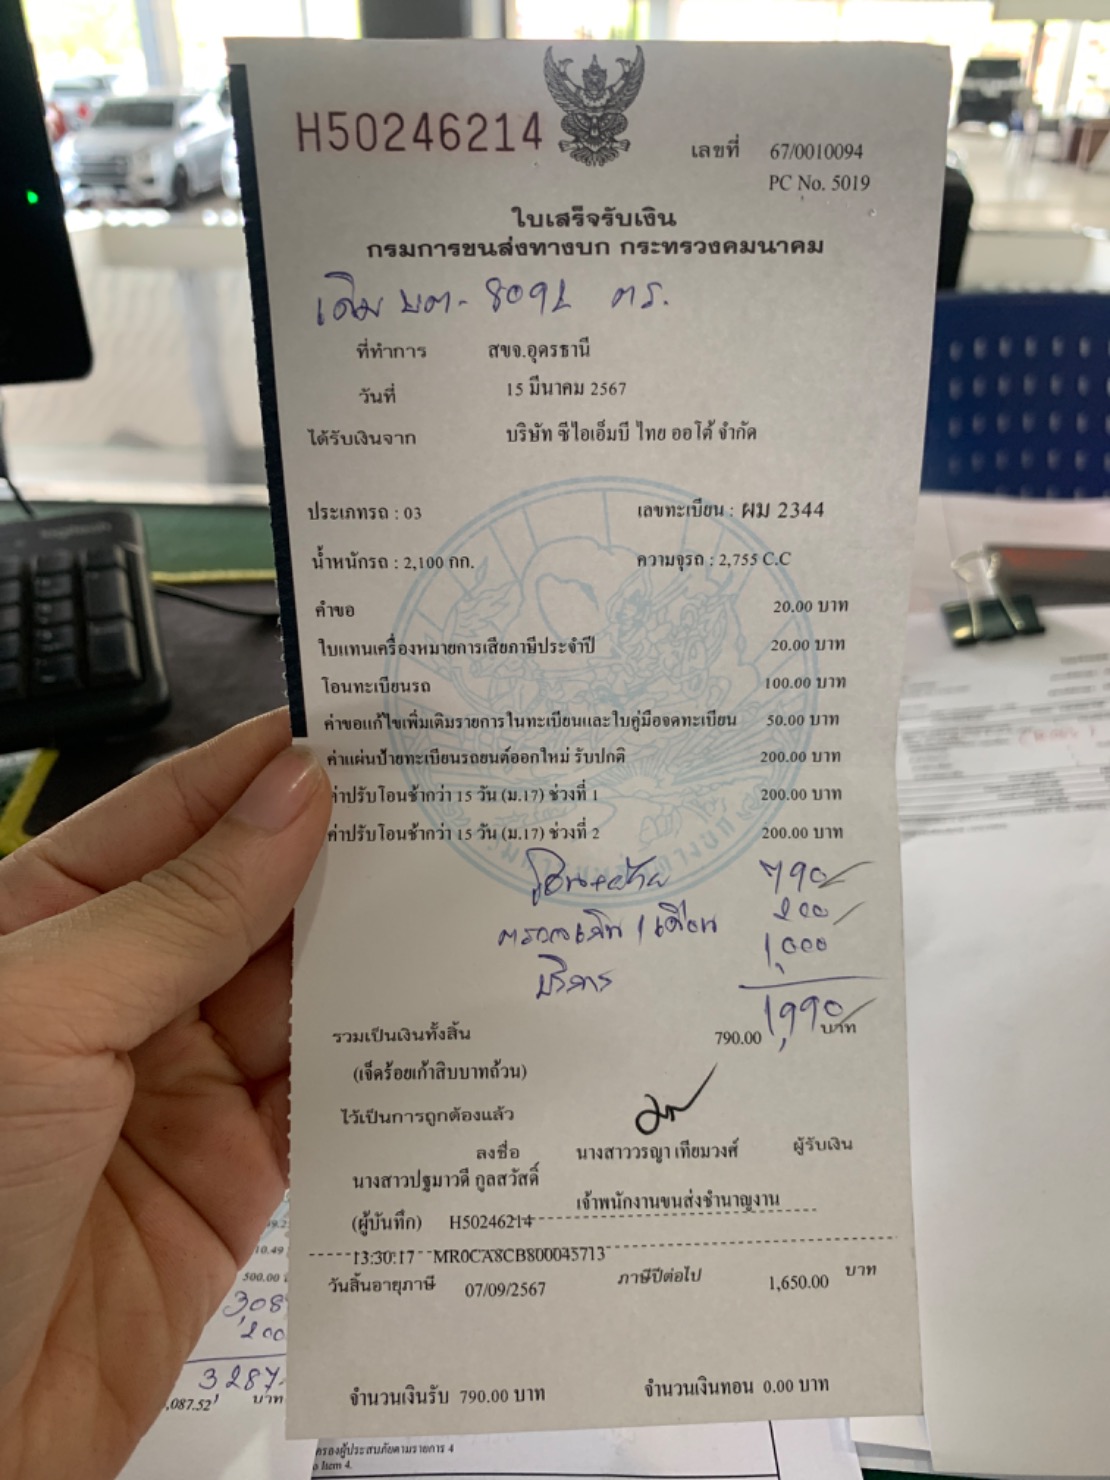 H50246214
เลขที่ 67/0010094
PC No. 5019
ใบเสร็จรับเงิน
กรมการขนส่งทางบก กระทรวงคมนาคม
เดิม บต- 8092 ตร.
ที่ทำการ สขจ.อุดรธานี
วันที่ 15 มีนาคม 2567
ได้รับเงินจาก บริษัท ซีไอเอ็มบี ไทย ออโต้ จำกัด
ประเภทรถ : 03 เลขทะเบียน : ผม 2344
น้ำหนักรถ : 2,100 กก. ความจุรถ : 2,755 C.C
คำขอ 20.00 บาท
ใบแทนเครื่องหมายการเสียภาษีประจำปี 20.00 บาท
โอนทะเบียนรถ 100.00 บาท
ค่าขอแก้ไขเพิ่มเติมรายการในทะเบียนและใบคู่มือจดทะเบียน 50.00 บาท
ค่าแผ่นป้ายทะเบียนรถยนต์ออกใหม่ รับปกติ 200.00 บาท
ค่าปรับโอนช้ากว่า 15 วัน (ม.17) ช่วงที่ 1 200.00 บาท
ค่าปรับโอนช้ากว่า 15 วัน (ม.17) ช่วงที่ 2 200.00 บาท
790
200
1,000
บริการ
1,990
รวมเป็นเงินทั้งสิ้น 790.00 บาท
(เจ็ดร้อยเก้าสิบบาทถ้วน)
ไว้เป็นการถูกต้องแล้ว
ลงชื่อ นางสาววรญา เทียมวงศ์ ผู้รับเงิน
นางสาวปฐมาวดี กูลสวัสดิ์ เจ้าพนักงานขนส่งชำนาญงาน
(ผู้บันทึก) H50246214
13:30:17 MR0CA8CB800045713
วันสิ้นอายุภาษี 07/09/2567 ภาษีปีต่อไป 1,650.00 บาท
จำนวนเงินรับ 790.00 บาท จำนวนเงินทอน 0.00 บาท
10.49
500.00
3,08
200
3,287
,087.52 บาท
ครองผู้ประสบภัยตามรายการ 4
Item 4.